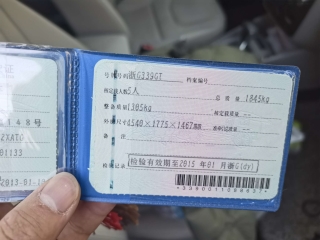 号牌号码 浙G339GT 档案编号
核定载人数 5人 总质量 1845kg
整备质量 1305kg 核定载质量 --
外廓尺寸 4540×1775×1467mm 准牵引总质量 --
备注
检验记录 检验有效期至2015年01月浙G(dy)
148号
01133
2013-01-1